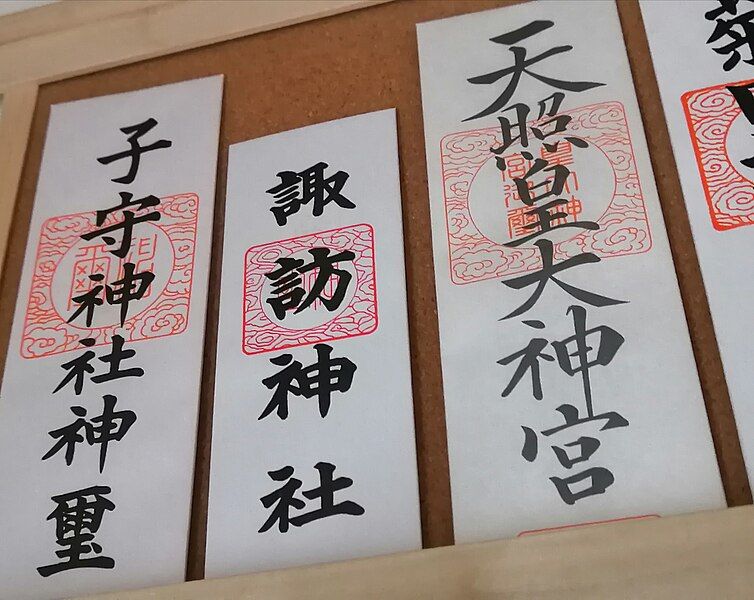 天照皇大神宮
諏訪神社
子守神社神璽